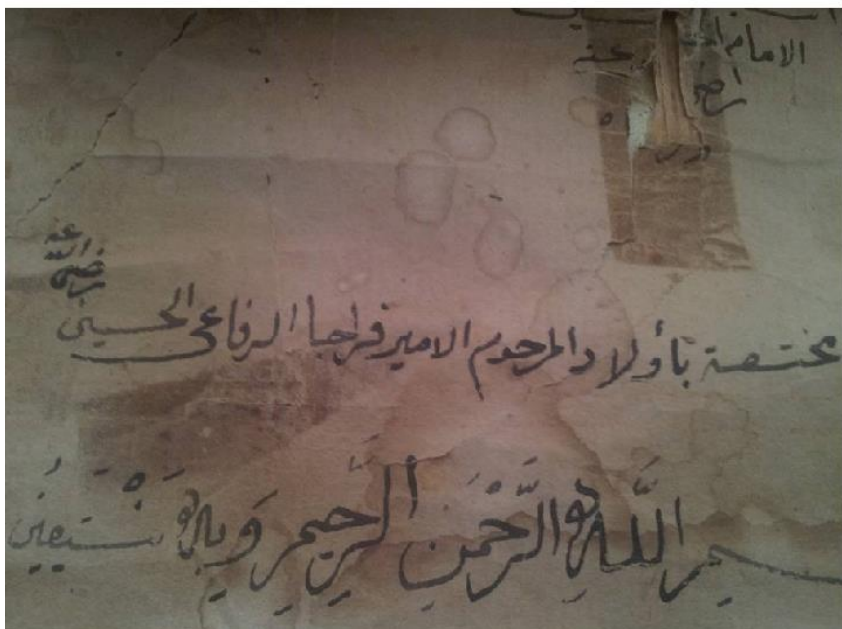 الامام
عنه
مختصة بأولاد المرحوم الامير قراجا الرفاعي الحسيني
رضي الله عنه
بسم الله الرحمن الرحيم وبه نستعين